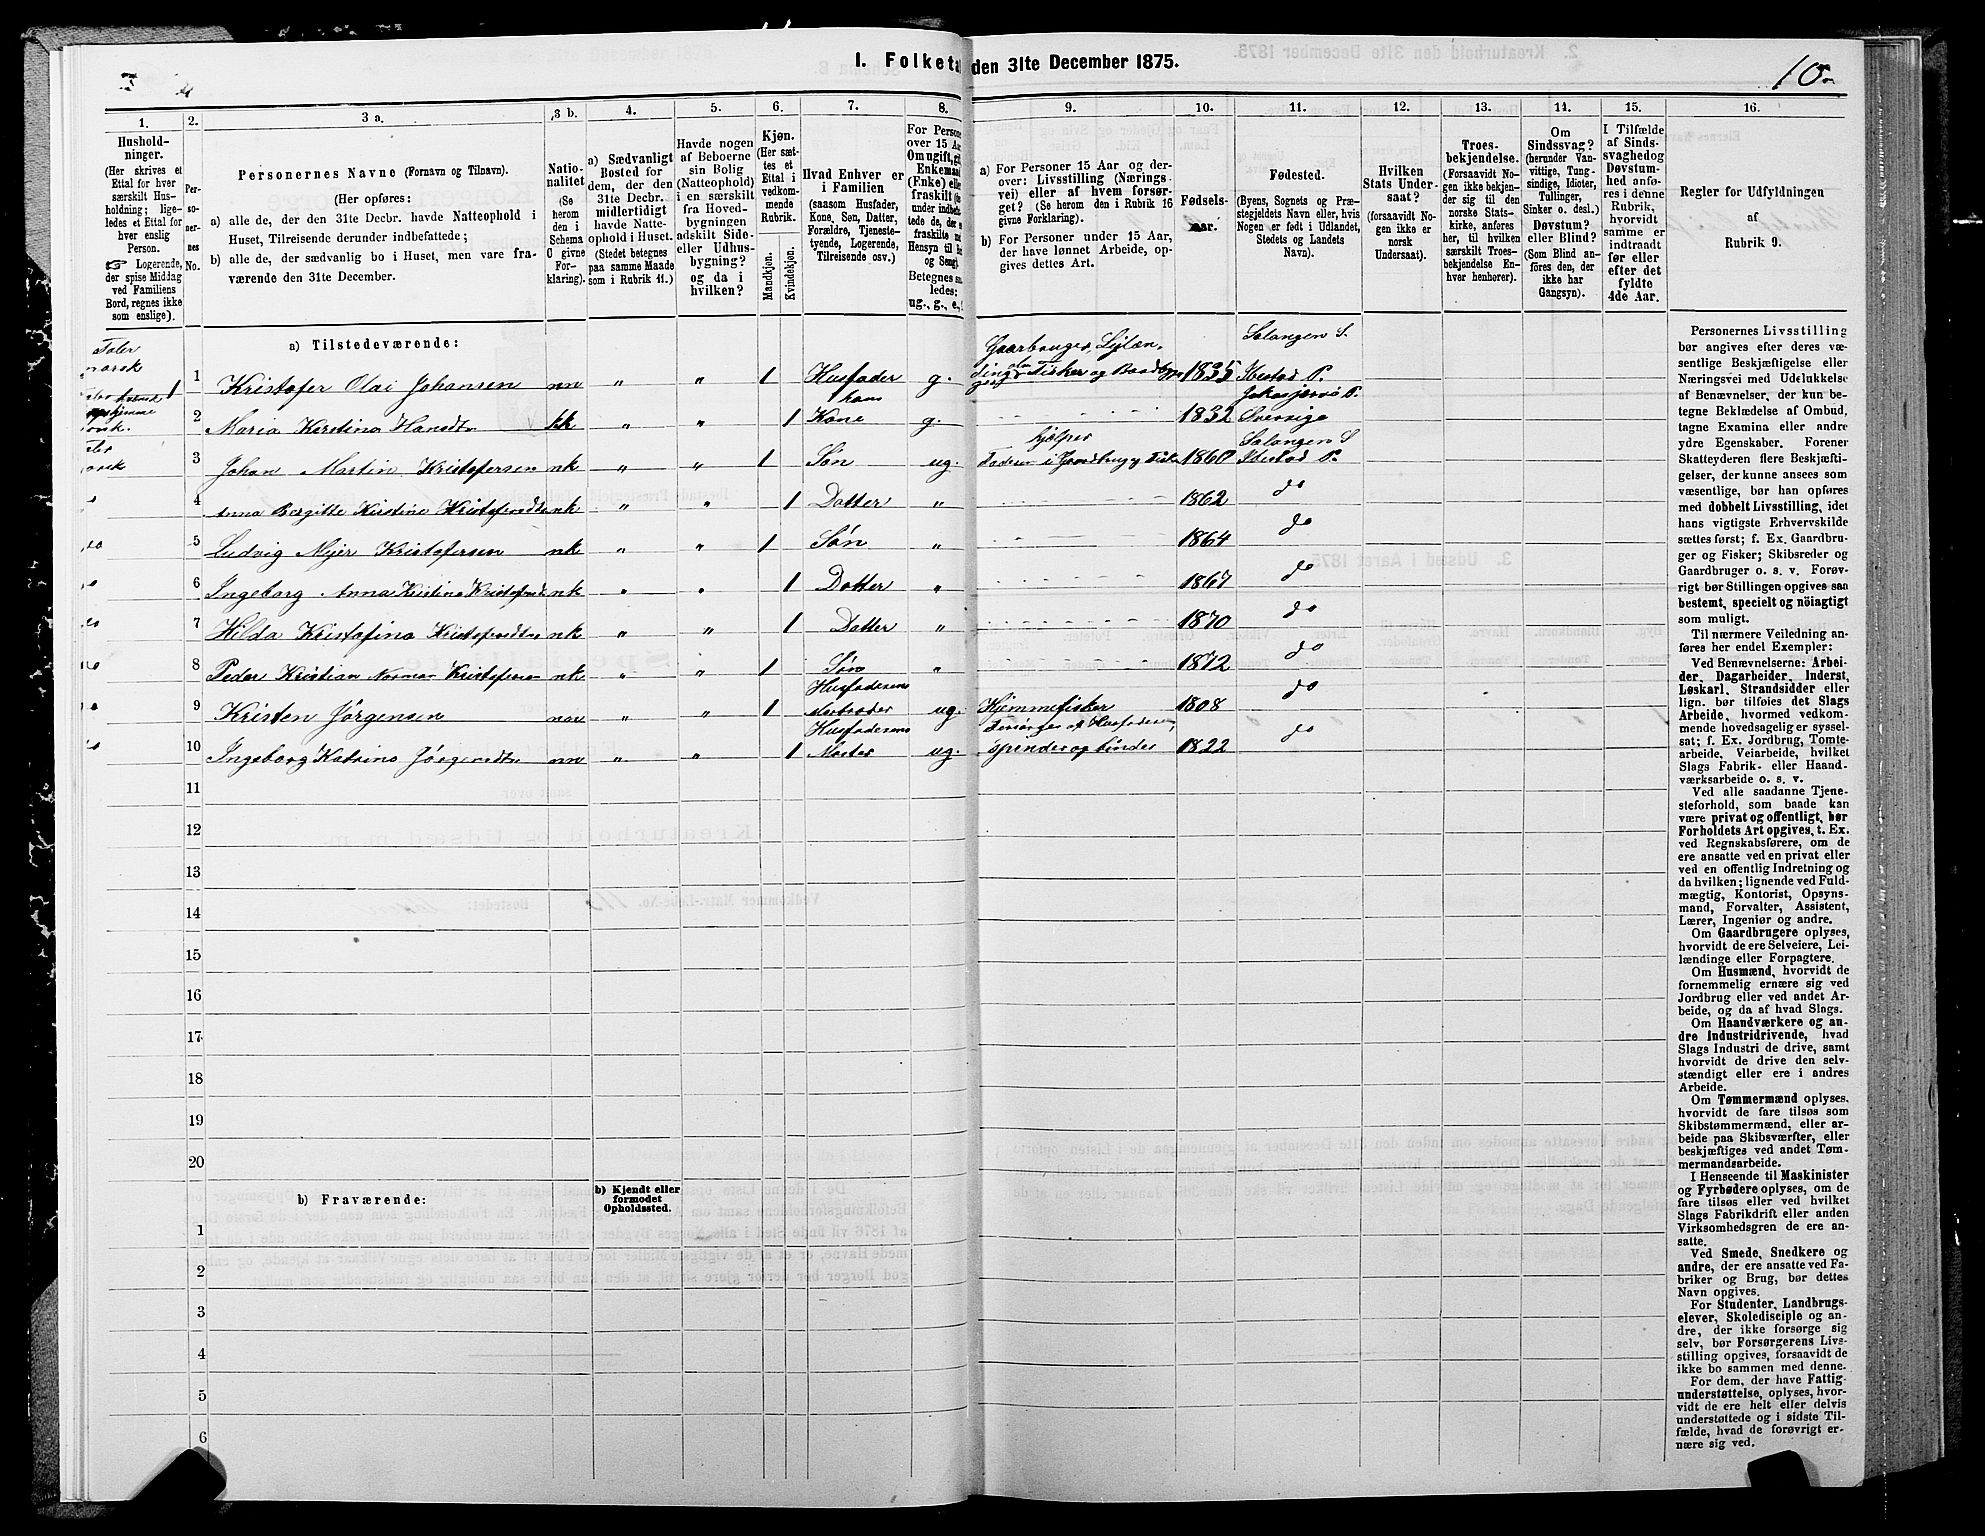 I. Folketal den 31te December 1875.
10
1.
2.
3 a.
3 b.
4.
5.
6.
7.
8.
9.
10.
11.
12.
13.
14.
15.
16.
Hushold-
ninger.
(Her skrives et
Ettal for hver
særskilt Hus-
holdning; lige-
ledes et Ettal for
hver enslig
Person.
☞ Logerende,
der spise Middag
ved Familiens
Bord, regnes ikke
som enslige).
Per-
so-
ner-
nes
No.
Personernes Navne (Fornavn og Tilnavn).
(Her opføres:
a) alle de, der den 31te Decbr. havde Natteophold i
Huset, Tilreisende derunder indbefattede;
b) alle de, der sædvanlig bo i Huset, men vare fra-
værende den 31te December.
Natio-
nalitet
(Se
herom
den i
Schema
C givne
For-
klaring).
a) Sædvanligt
Bosted for
dem, der den
31te Decbr.
midlertidigt
havde Natte-
ophold i Huset.
(Stedet betegnes
paa samme Maade
som i Rubrik 11.)
Havde nogen
af Beboerne
sin Bolig
(Natteophold)
i en særskilt
fra Hoved-
bygningen
adskilt Side-
eller Udhus-
bygning?
og da i
hvilken?
Kjøn.
(Her sæt-
tes et
Ettal i
vedkom-
mende
Rubrik.
Mandkjøn.
Kvindekjøn.
Hvad Enhver er
i Familien
(saasom Husfader,
Kone, Søn, Datter,
Forældre, Tjeneste-
tyende, Logerende,
Tilreisende osv.)
For Persone
over 15 Aar
Om ugift, gif
Enkemand
(Enke) elle
fraskilt
Betegnes saa
ledes:
ug., g., e.,
a) For Personer 15 Aar og der-
over: Livsstilling (Nærings-
vei) eller af hvem forsør-
get? (Se herom den i Rubrik 16
givne Forklaring).
b) For Personer under 15 Aar,
der have lønnet Arbeide, op-
gives dettes Art.
Fødsels-
aar.
Fødested.
(Byens, Sognets og Præ-
stegjeldets Navn eller, hvis
Nogen er født i Udlandet,
Stedets og Landets
Navn).
Hvilken
Stats Under-
saat?
(forsaavidt No-
gen ikke er
norsk
Undersaat).
Troes-
bekjendelse.
(Forsaavidt No-
gen ikke bekjen-
der sig til den
norske Stats-
kirke, anføres
her, til hvilken
særskilt Troes-
bekjendelse En-
hver henhører).
Om
Sindssvag?
(herunder Van-
vittige, Tung-
sindige, Idioter,
Tullinger,
Sinker o. desl.)
Døvstum?
eller Blind?
(Som Blind an-
føres den, der
ikke har
Gangsyn).
I Tilfælde
af Sinds-
svaghed og
Døvstum-
hed anfø-
res i denne
Rubrik,
hvorvidt
samme er
indtraadt
før eller
efter det
fyldte
4de Aar.
Regler for Udfyldningen
af
Rubrik 9.
a) Tilstedeværende:
Taler
norsk
1 Kristofer Olai Johansen nn " " 1 Husfader g. Gaarbruger, Leilæn- Fisker og 1835 Salangen S. Ibestad P.
2 Maria Kirstina Hansdtr kk " " 1 hans Kone g. 1832 Sverrige
3 Johan Martin Kristofersen nk " " 1 Søn ug. hjelper Faderen i Gaardbrug og Fisk 1860 Salangen S Ibestad P.
4 Anna Birgitte Kirstine Kristofersdtr nk " " 1 Datter " 1862 do
5 Ludvig Mejer Kristofersen nk " " 1 Søn " 1864 do
6 Ingeborg Anna Kristina Kristofersd nk " " 1 Datter " 1867 do
7 Hilda Kristofina Kristofersdtr nk " " 1 Datter " 1870 do
8 Peder Kristian Norman Kristofersen nk " " 1 Søn " 1872 do
9 Kristen Jørgensen nn " " 1 Husfaderens ug. Hjemmefisker 1808 do
10 Ingeborg Katrina Jørgensdtr nn " " 1 Husfaderens Moster ug. Forsørges af Husfaderen, spinder og binder 1822 do
11
12
13
14
15
16
17
18
19
20
b) Fraværende:
b) Kjendt eller
formodet
Opholdssted.
1
2
3
4
5
6
Personernes Livsstilling
bør angives efter deres væ-
sentlige Beskjæftigelse eller
Næringsvei med Udelukkelse
af Benævnelser, der kun be-
tegne Beklædelse af Ombud,
tagne Examina eller andre
ydre Egenskaber. Forener
Skatteyderen flere Beskjæfti-
gelser, der kunne ansees som
væsentlige, bør han opføres
med dobbelt Livsstilling, idet
hans vigtigste Erhvervskilde
sættes først; f. Ex. Gaardbru-
ger og Fisker; Skibsreder og
Gaardbruger o. s. v. Forøv-
rigt bør Stillingen opgives saa
bestemt, specielt og nöiagtigt
som muligt.
Til nærmere Veiledning an-
føres her endel Exempler:
Ved Benævnelserne: Arbei-
der, Dagarbeider, Inderst,
Løskarl, Strandsidder eller
lign. bør tilføies det Slags
Arbeide, hvormed vedkom-
mende hovedsagelig er syssel-
sat; f. Ex. Jordbrug, Tomte-
arbeide, Veiarbeide, hvilket
Slags Fabrik- eller Haand-
værksarbeide o. s. v.
Ved alle saadanne Tjene-
steforhold, som baade kan
være privat og offentligt, bør
Forholdets Art opgives, t. Ex.
ved Regnskabsførere, om de
ere ansatte ved en privat eller
ved en offentlig Indretning og
da hvilken; lignende ved Fuld-
mægtig, Kontorist, Opsyns-
mand, Forvalter, Assistent,
Lærer, Ingeniør og andre.
Om Gaardbrugere oplyses,
hvorvidt de ere Selveiere, Lei-
lændinge eller Forpagtere.
Om Husmænd, hvorvidt de
fornemmelig ernære sig ved
Jordbrug eller ved andet Ar-
beide, og da af hvad Slags.
Om Haandværkere og an-
dre Industridrivende, hvad
Slags Industri de drive, samt
hvorvidt de drive den selv-
stændigt eller ere i andres
Arbeide.
Om Tømmermænd oplyses,
hvorvidt de fare tilsøs som
Skibstømmermænd, eller ar-
beide paa Skibsværfter, eller
beskjæftiges ved andet Tøm-
mermandsarbeide.
I Henseende til Maskinister
og Fyrbødere oplyses, om de
fare tilsøs eller ved hvilket
Slags Fabrikdrift eller anden
Virksomhedsgren de ere an-
satte.
Ved Smede, Snedkere og
andre, der ere ansatte ved Fa-
briker og Brug, bør dettes
Navn opgives.
For Studenter, Landbrugs-
elever, Skoledisciple og an-
dre, der ikke forsørge sig
selv, bør Forsørgerens Livs-
stilling opgives, forsaavidt de
ikke bo sammen med denne.
For dem, der have Fattig-
understøttelse, oplyses, hvor-
vidt de ere helt eller delvis
understøttede og i sidste Til-
fælde, hvad de forøvrigt er-
nære sig ved.